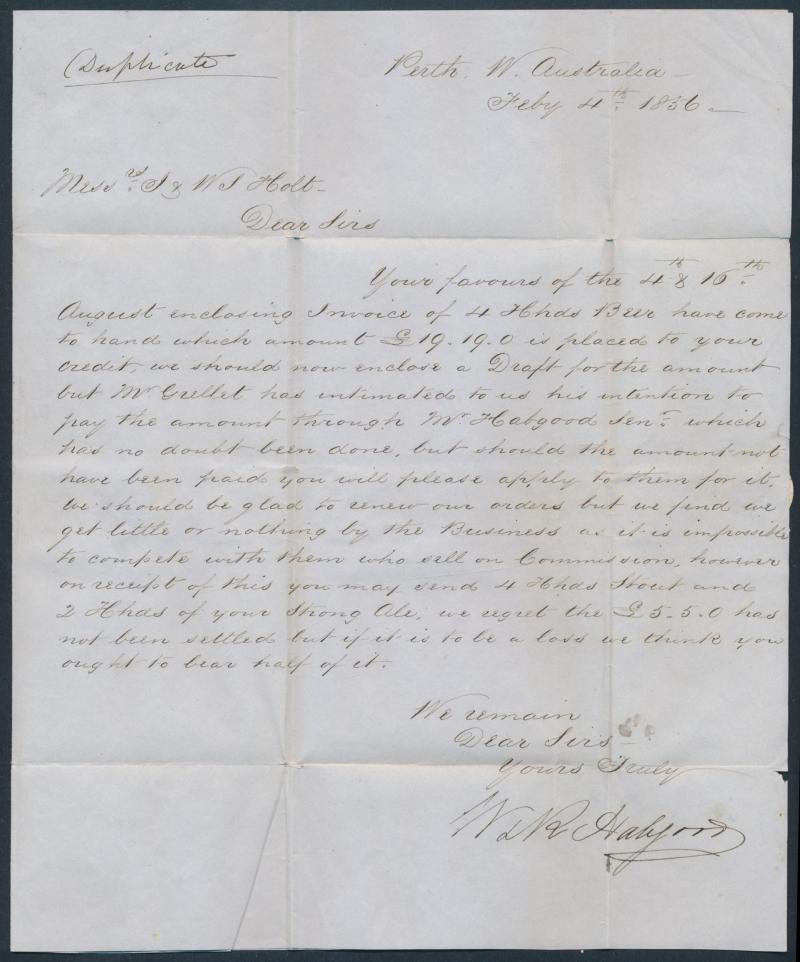 Duplicate
Perth. W. Australia
Feby 4th. 1856
Messrs. J & W J Holt
Dear Sirs
Your favours of the 4th & 16th.
August enclosing Invoice of 4 Hhds Beer have come
to hand which amount £19.19.0 is placed to your
credit, we should now enclose a Draft for the amount
but Mr Grellet has intimated to us his intention to
pay the amount through Mr. Habgood Senr. which
has no doubt been done, but should the amount not
have been paid you will please apply to them for it.
We should be glad to renew our orders but we find we
get little or nothing by the Business as it is impossible
to compete with them who sell on Commission, however
on receipt of this you may send 4 Hhds Stout and
2 Hhds of your Strong Ale, we regret the £5.5.0 has
not been settled but if it is to be a loss we think you
ought to bear half of it.
We remain
Dear Sirs
Yours Truly
W & R Habgood